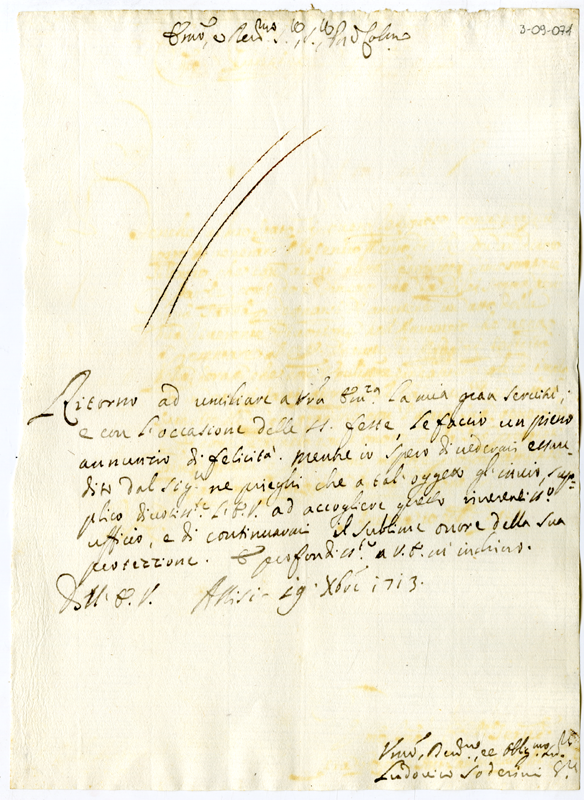 3-09-074
Emo, e Revmo Sig. Sig. Prōn Colmo
Ritorno ad umiliare a Vra Emza la mia gran servitù;
e con l'occasione delle SS. feste, le faccio un pieno
annunzio di felicità. Mentre io spero di vedermi essau-
dito dal Sigre ne prieghi che a tal oggetto gl'invio, sup-
plico divotisste L'E.V. ad accogliere questo riverentisso
ufficio, e di continuarmi il sublime onore della sua
protezzione. E profondisste a V.E. m'inchino.
Dell'E.V. Assisi 19. Xbre 1713.
Umo, Devmo, ee Obbgmo
Ludovico Soderini